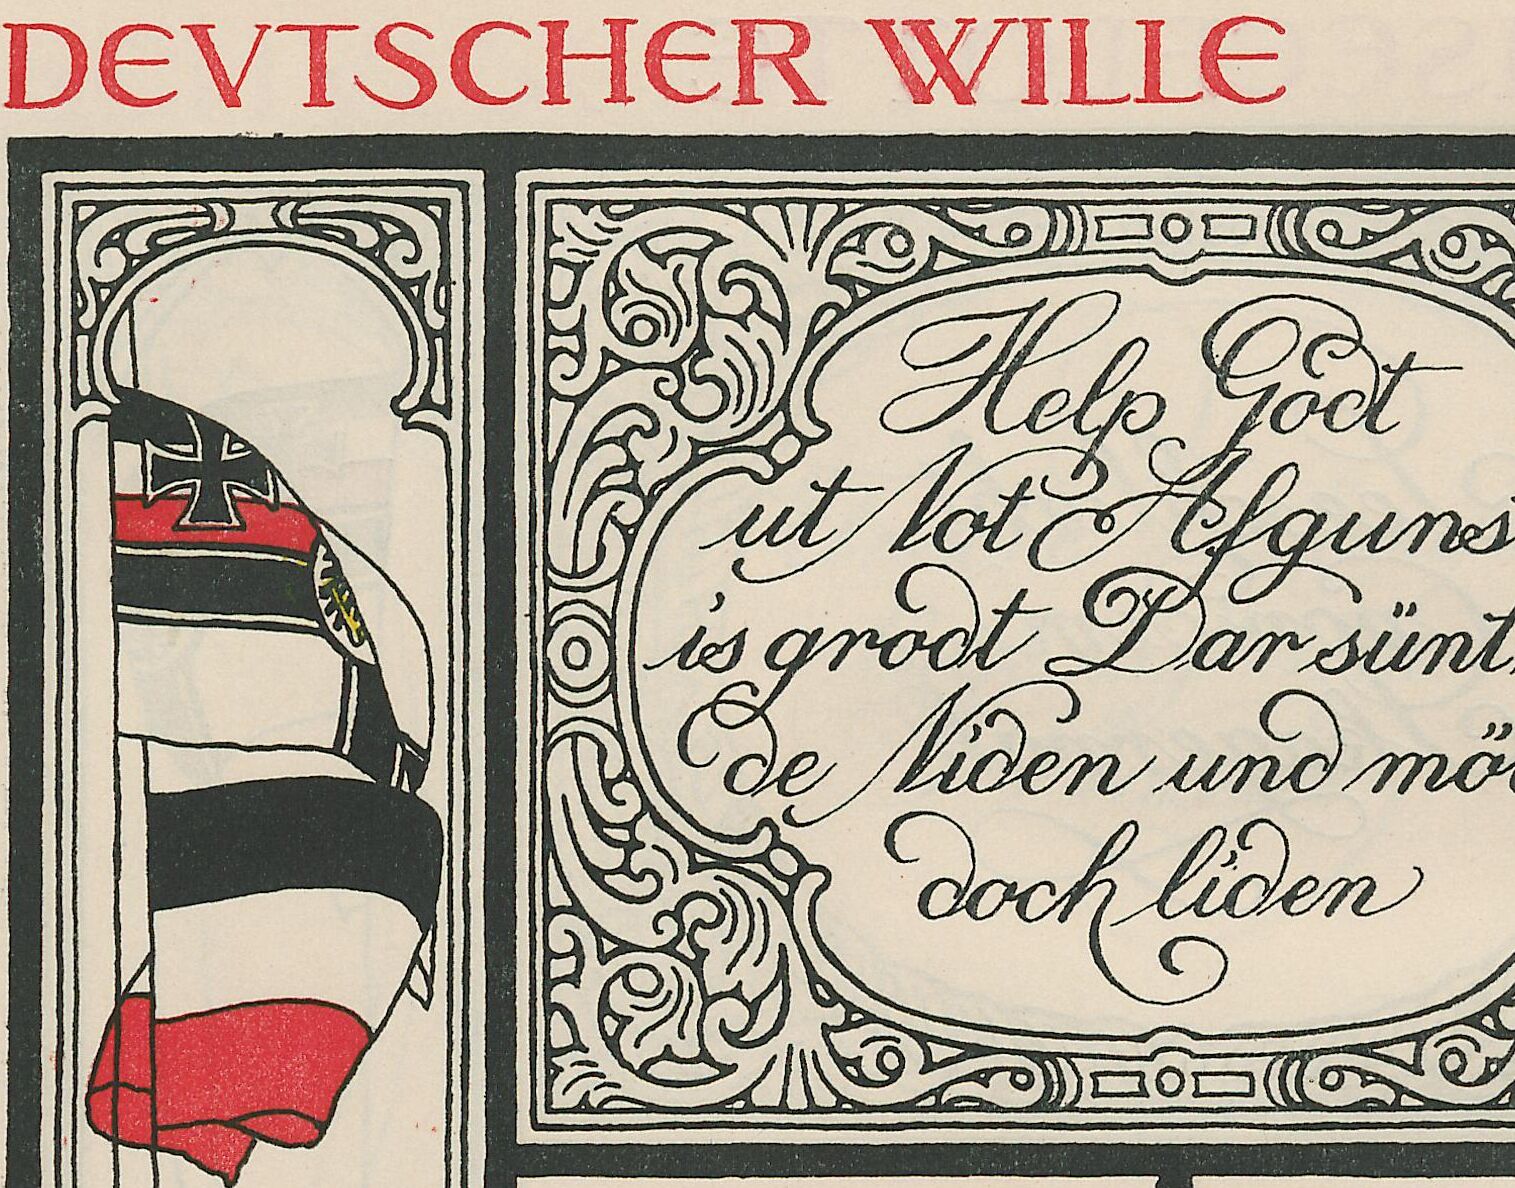 DEVTSCHER WILLE
Help Godt
ut Not Afguns
is grodt Dar sünt
de Niden und mö
doch liden